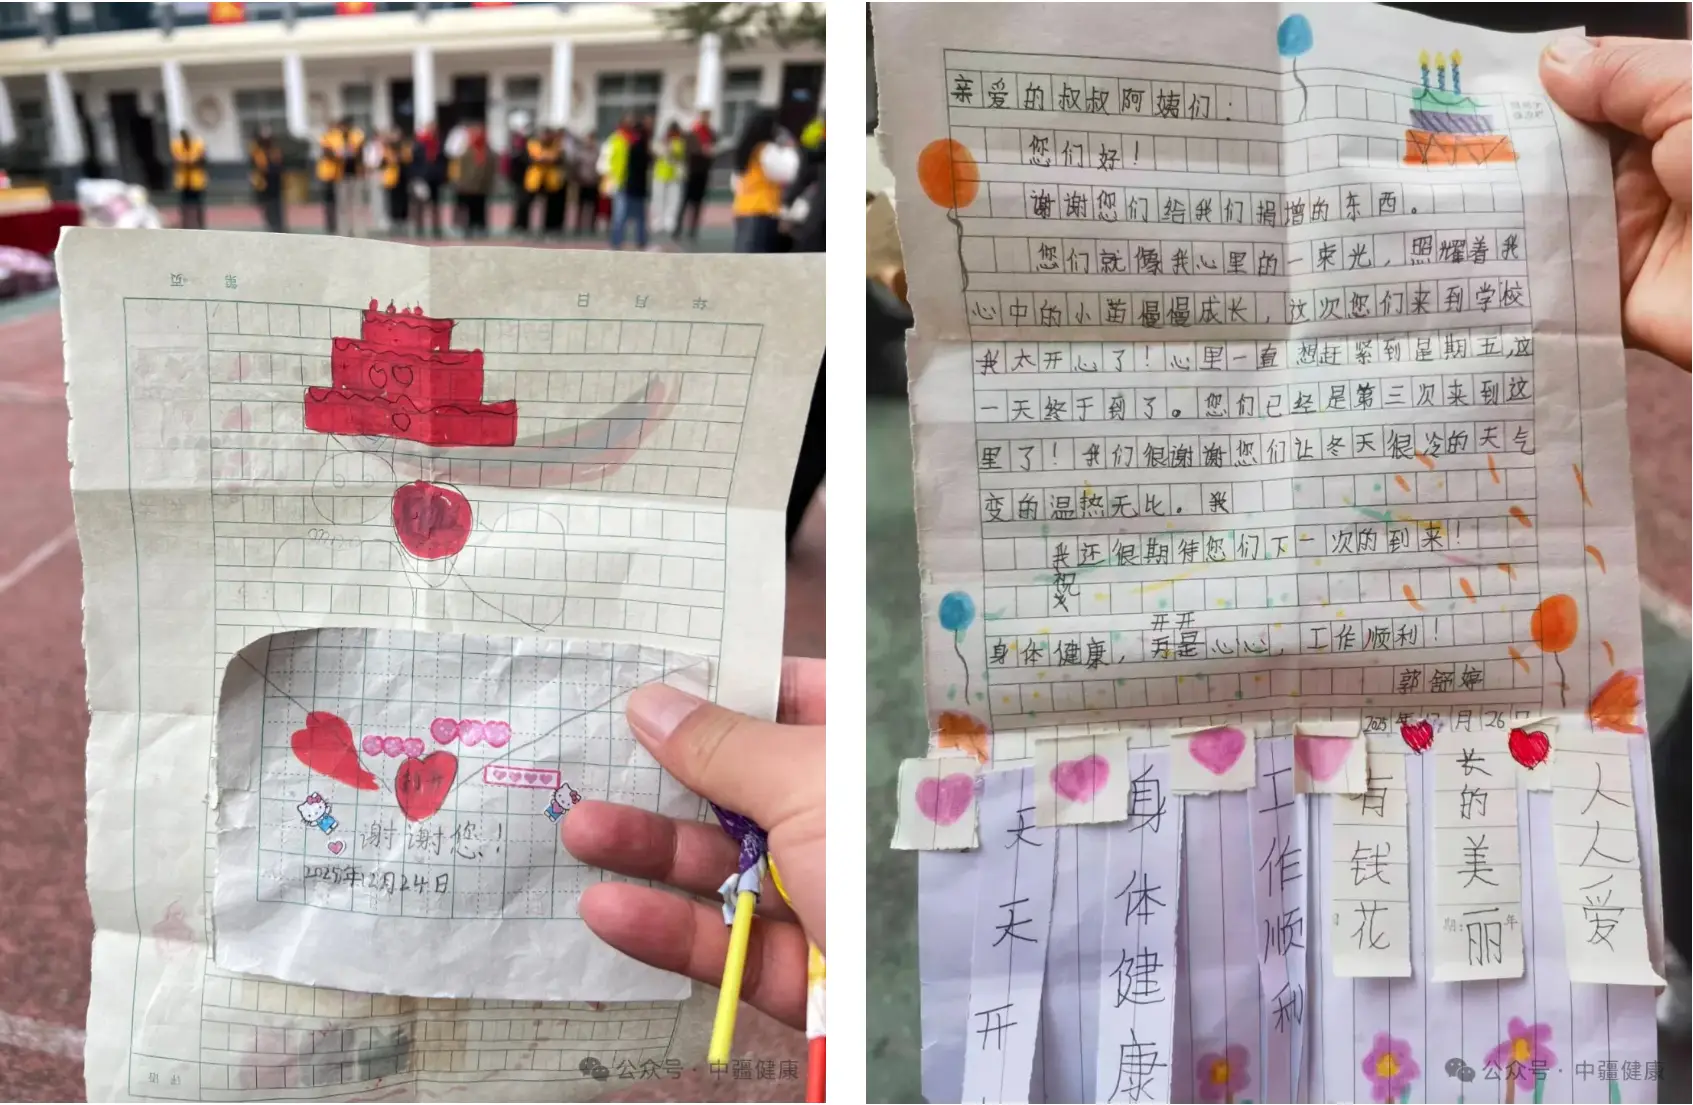 第 页
年 月 日
打开
谢谢您!
2025年12月24日
公众号·中疆健康
亲爱的叔叔阿姨们:
您们好!
谢谢您们给我们捐增的东西。
您们就像我心里的一束光,照耀着我
心中的小苗慢慢成长,这次您们来到学校
我太开心了!心里一直想赶紧到星期五,这
一天终于到了。您们已经是第三次来到这
里了!我们很谢谢您们让冬天很冷的天气
变的温热无比。我
我还很期待您们下一次的到来!
祝
开开
身体健康,心心,工作顺利!
郭舒婷
2025年12月26日
天天开
身体健康
工作顺利
有钱花
长的美丽
人人爱
公众号·中疆健康